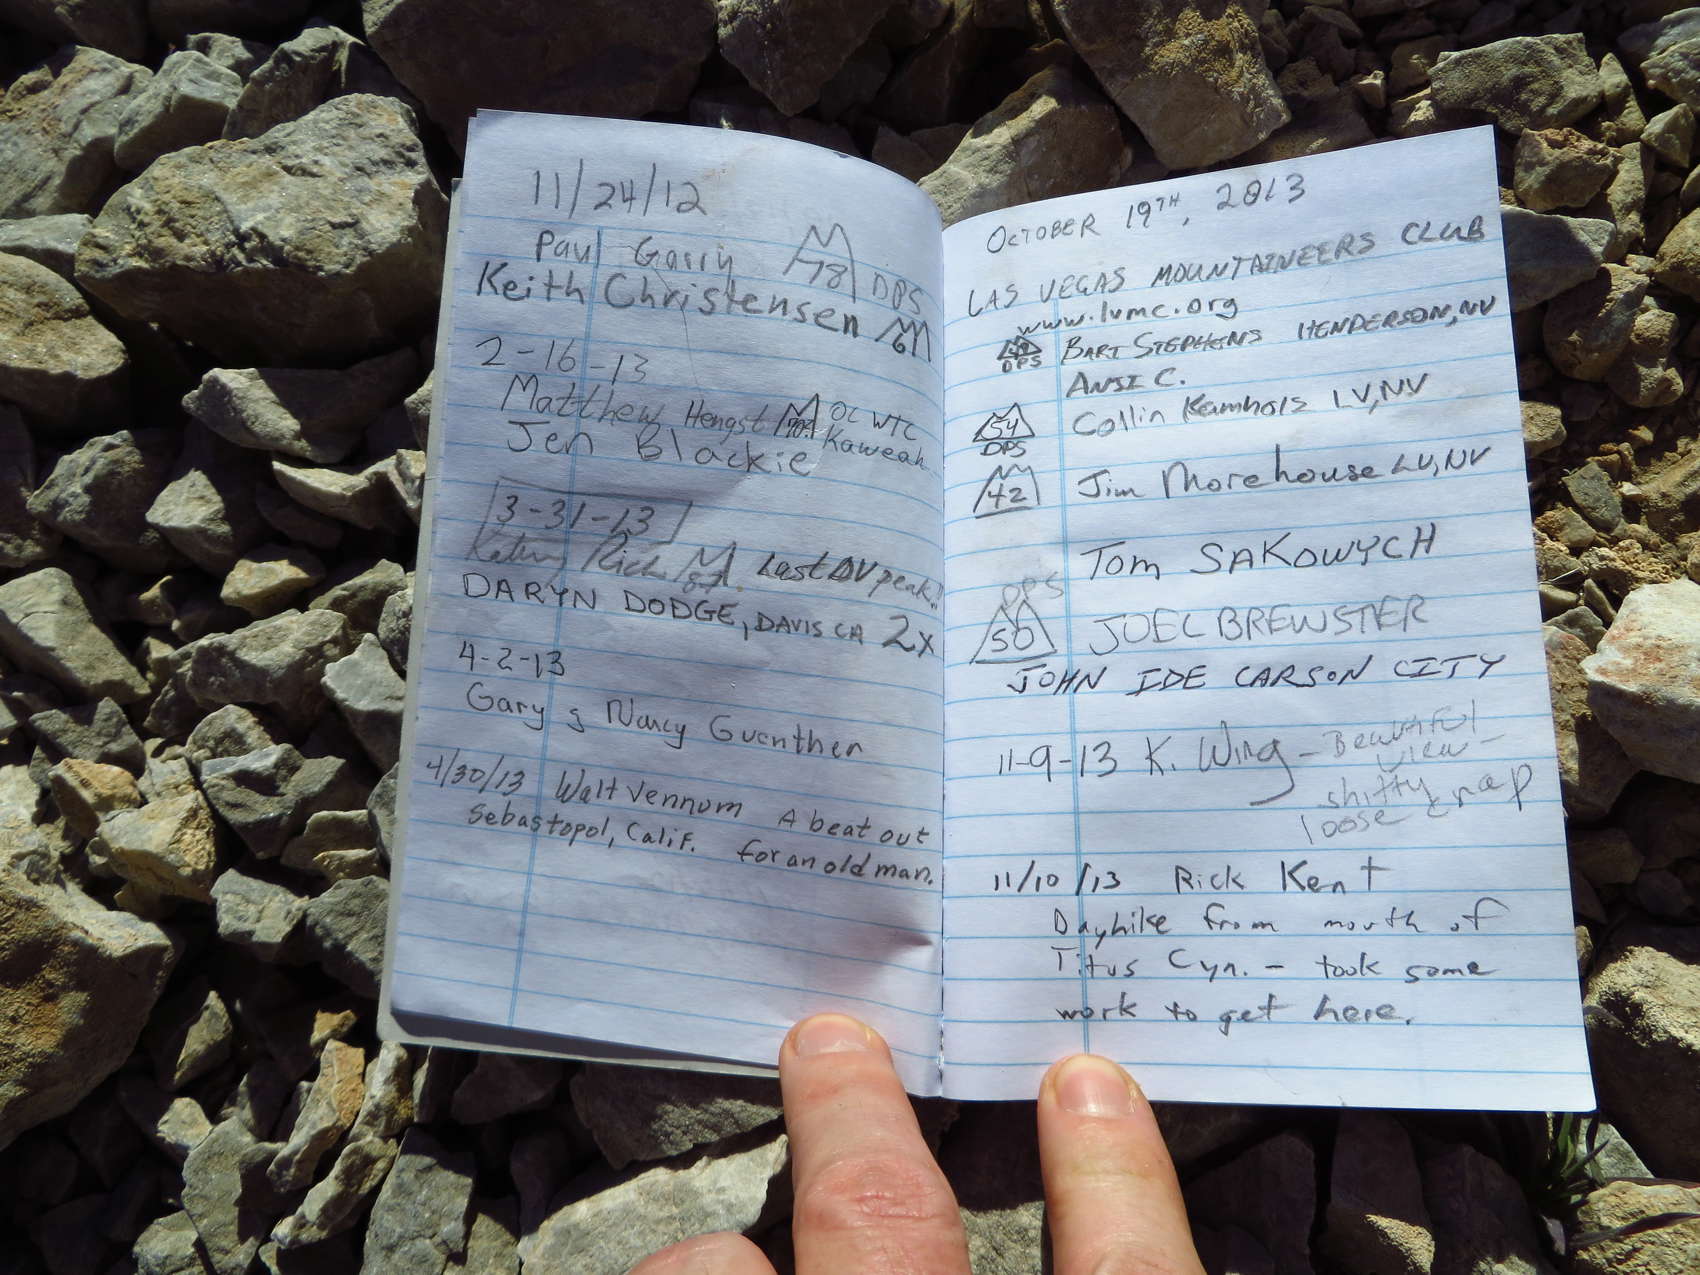 11/24/12
Paul Garry 78 DPS
Keith Christensen
2-16-13
Matthew Hengst OC WTC
Jen Blackie Kaweah
3-31-13
Rich Last DV peak!!
DARYN DODGE, DAVIS CA 2x
4-2-13
Gary & Nancy Guenther
4/30/13 Walt Vennum A beat out
Sebastopol, Calif. for an old man.
OCTOBER 19TH, 2013
LAS VEGAS MOUNTAINEERS CLUB
www.lvmc.org
DPS BART STEPHENS HENDERSON, NV
ANJI C.
54 DPS Collin Kamholz LV, NV
42 Jim Morehouse LV, NV
Tom SAKOWYCH
DPS
50 JOEL BREWSTER
JOHN IDE CARSON CITY
11-9-13 K. Wing - Beautiful
view -
shitty
loose crap
11/10/13 Rick Kent
Dayhike from mouth of
Titus Cyn. - took some
work to get here.